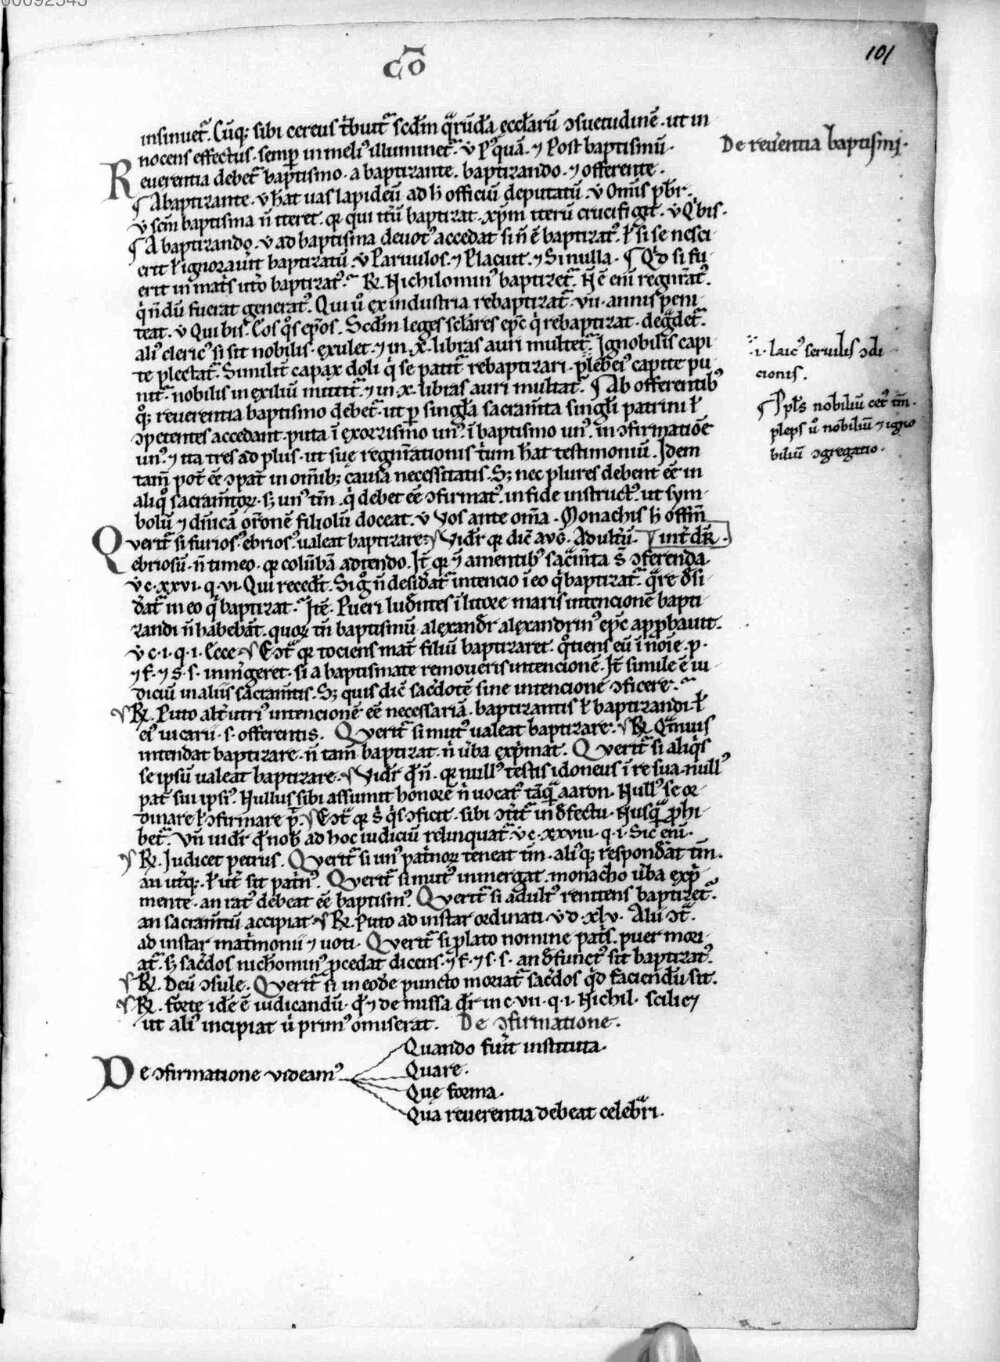 00092343
101
cō
insinuet᷑. Cūq; sibi cereus t̄buit᷑ scd̄m q̄rūdā eccl̄arū ɔsuetudinē. ut in
nocens effectus. semp in meliꝰ illuminet᷑. v Pꝰquā. ⁊ Post baptismū.
De reuerentia baptismi.
Reuerentia debet᷑ baptismo. a baptizante. baptizando. ⁊ offerente.
¶ A baptizante. v h̄at uas lapideū ad h̄ officiū deputatū. v Om̄is pb̄r.
v sc̄m baptisma n̄ iteret. qꝛ qui itū baptizat. xp̄m iterū crucifigit. v Q bis.
¶ A baptizando. v ad baptisma deuotꝰ accedat si n̄ ē baptizatꝰ. ł si se nesci
erit ł ignorauīt baptizatū. v Paruulos. ⁊ Placuit. ⁊ Si nulla. ¶ Qd si fu
erit in mat̄s ut̄o baptizatꝰ. R̄. Nichilominꝰ baptizet᷑. N̄ ē eni regn̄atꝰ.
q n̄dū fuerat generatꝰ. Qui ů ex industria rebaptizat᷑. vii. annis peni
teat. v Qui bis. Eos qͦs ep̄os. Scd̄m leges scl̄ares ep̄c q̇ rebaptizat. deg̊det᷑.
aliꝰ clericꝰ si sit nobilis. exulet ⁊ in .x. libras auri multet᷑. Ignobilis capi
te plectat᷑. Similit̄ capax doli q̇ se patit᷑ rebaptizari. plebeiꝰ capite pu
nit᷑. nobilis in exiliū mittit᷑ ⁊ in .x. libras auri multat᷑. ¶ Ab offerentibꝰ
.i. laicꝰ seruilis ɔdi
cionis.
qͦ; reuerentia baptismo debet᷑. ut p singl̄a sacram̄ta singl̄i patrini ł
¶ Ppl̄s nobiliū cet᷑ tm̄.
ɔpetentes accedant. puta ī exorzismo unꝰ. ī baptismo unꝰ. in ɔfirmatiōe
pleps ů nobiliū ⁊ igno
unꝰ. ⁊ ita tres ad plus. ut suę regn̄ationis t̄um h̄at testimoniū. Idem
biliū ɔgregatio.
tam̄ pot̄ ēē ɔpat̄ in omīb; causa necessitatis. S; nec plures debent ēē in
aliq̊ sacram̄toꝝ. s; unꝰ tm̄. q̇ debet ēē ɔfirmatꝰ. in fide instructꝰ. ut sym
bolū ⁊ dn̄icā or̄onē filiolū doceat. v Vos ante om̄a. Monachis h̄ offm̄
Querit᷑ si furiosꝰ ebriosꝰ ualeat baptizare. Vid̄r qꝛ dic̄ aug̊. Adult̄ū. int᷑dr̄.
ebriosū. n̄ timeo. qꝛ colūbā adtendo. It̄ qꝛ ⁊ amentibꝰ sac̄m̄ta s̄ ɔferenda.
v c. xxvi. q. vi. Qui recedt̄. Sig̊ n̄ desid̄at᷑ intencio ī eo q̇ baptizat᷑. q̄re d̄si
d̄at᷑ in eo q̇ baptizat. Itē. Pueri lud̄ntes ī litore maris intencionē bapti
zandi n̄ habebāt. quoꝝ tn̄ baptismū alexand̄r alexandrinꝰ ep̄c app̄bauit.
v c. i. q. i. Ecce. Ect᷑ qꝛ tociens mat᷑ filiū baptizaret. qͦtiens eū ī noīe. p.
⁊ f. ⁊ s. s. inmgeret. si a baptismate remoueris intencionē. It̄ simile ē iu
diciū in aliis sacram̄tis. S; quis dic̄ sacd̄otē sine intencione ɔficere.
R̄. Puto alt̄utriꝰ intencionē ēē necessariā. baptizantis ł baptizandi. ł
eiꝰ uicarii. s. offerentis. Querit᷑ si mutꝰ ualeat baptizare. R̄. Qm̄uis
intendat baptizare. n̄ tam̄ baptizat. n̄ ůba exp̄mat. Querit᷑ si aliq̇s
se ipsū ualeat baptizare. Vid̄r q̇ n̄. qꝛ nullꝰ testis idoneus ī re sua. nullꝰ
pat᷑ sui ipsiꝰ. Nullus sibi assumit honorē n̄ uocatꝰ tāq̄ aaron. Nullꝰ se or
dinare ł ɔfirmare p̄. Ect᷑ qꝛ s̄ q̇s ɔficit. sibi ɔt̄it᷑ in d̄fectu. Nusq̄ phi
bet᷑. Vn̄ uidr̄ q̇ nob̄ ad hoc iudiciū relinquat᷑. v c. xxviii. q. i. Sic eni.
R̄. Iudicet petrus. Querit᷑ si unꝰ patnoꝝ teneat tm̄. aliꝰ q; respond̄at tm̄.
an ut̄q;. ł ut᷑ sit patnꝰ. Querit᷑ si mutꝰ inmergat. monacho ůba exp̄
mente. an ratꝰ debeat ēē baptismꝰ. Querit᷑ si adultꝰ renitens baptizet᷑.
an sacram̄tū accipiat. R̄. Puto ad instar ordinati. v d. xlv. Alii ɔt̄.
ad instar mat̄monii ⁊ uoti. Querit᷑ si plato nomine pat̄s. puer mori
at᷑. h̄ sacd̄os nichominꝰ pcedat dicens. ⁊ f. ⁊ s. s. an d̄functꝰ sit baptizatꝰ.
R̄. Deū ɔsule. Querit᷑ si in eod̄ē puncto moriat᷑ sacd̄os qd faciendū sit.
R̄. forte idē ē iudicandū. q̇ ⁊ de missa q̇r in c. vii. q. i. Nichil. scilicet
ut aliꝰ incipiat ů primꝰ omiserat. De ɔfirmatione.
De ɔfirmatione videamꝰ
Quando fuīt instituta.
Quare.
Que forma.
Qua reuerentia debeat celebri.